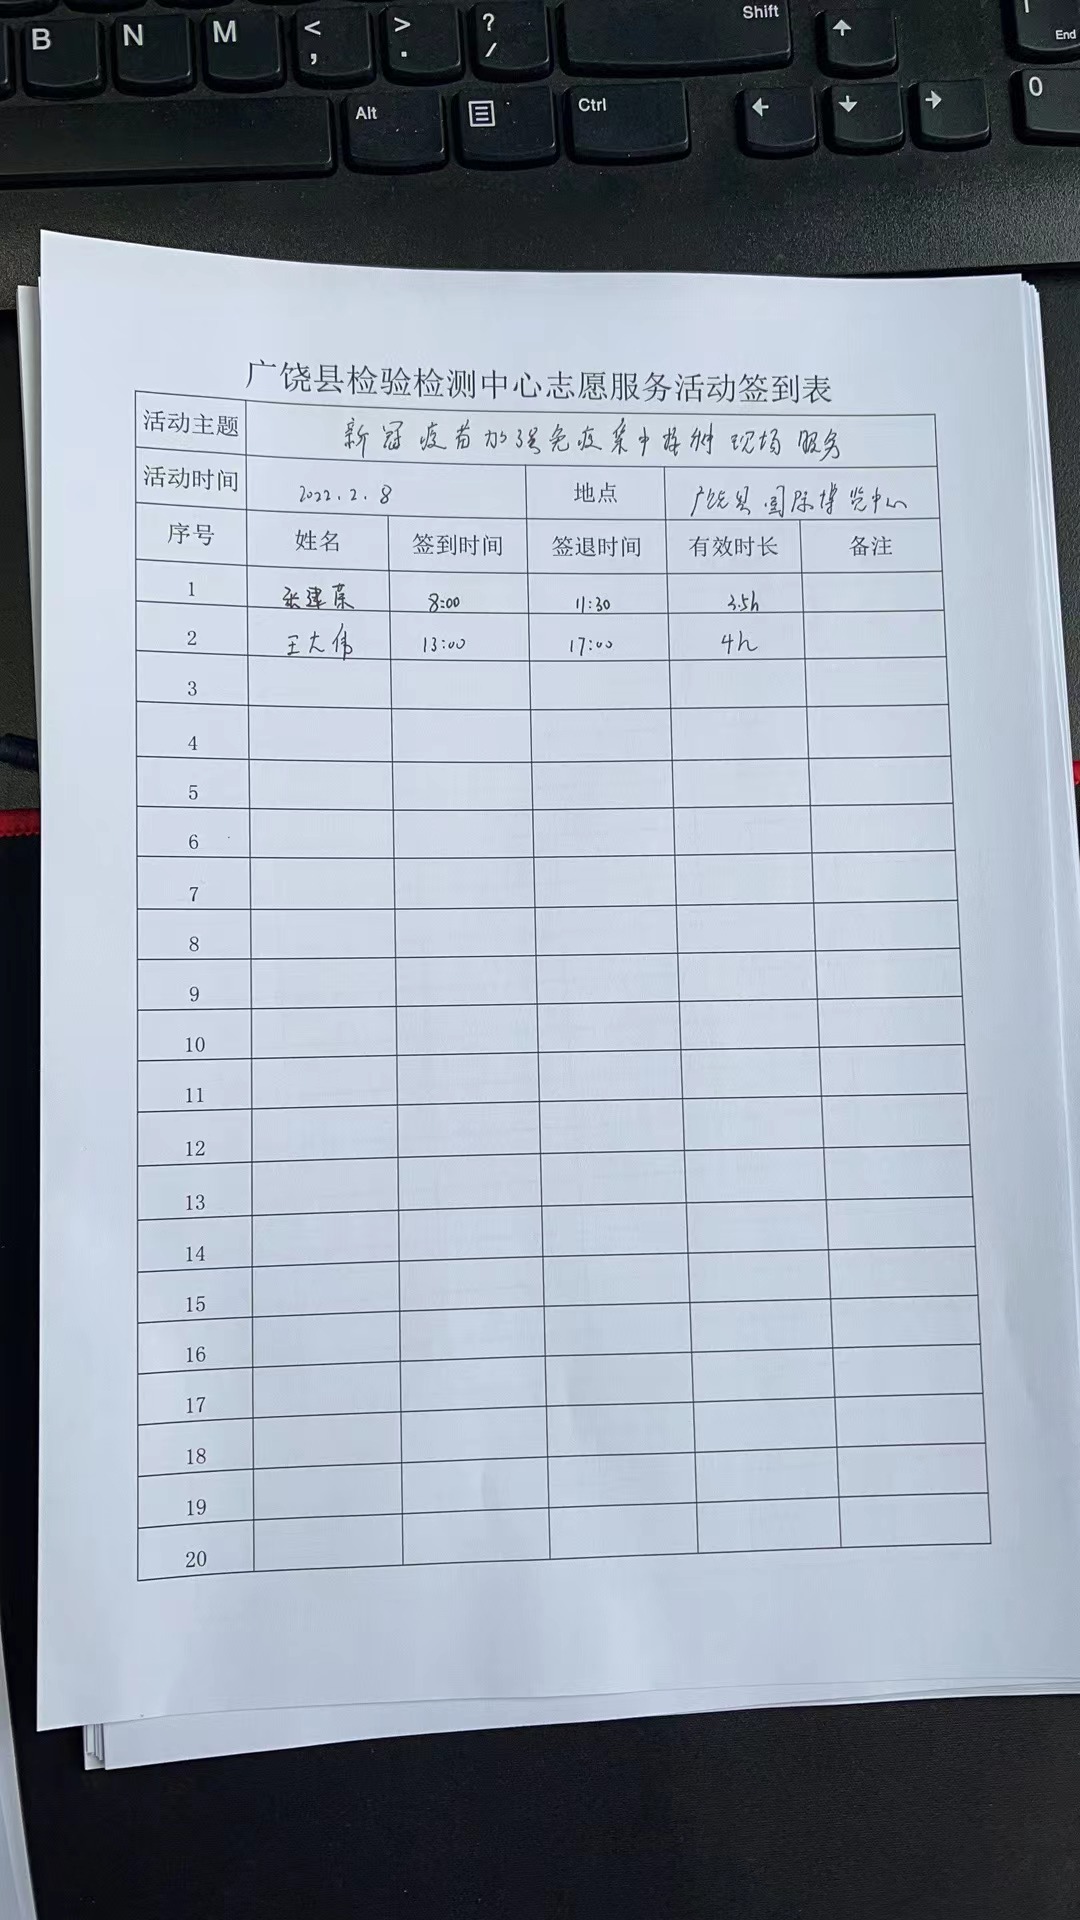 B N M < , > . ? / Shift ↑ End
Alt Ctrl ← ↓ → 0
广饶县检验检测中心志愿服务活动签到表
活动主题 新冠疫苗加强免疫集中接种现场服务
活动时间 2022.2.8 地点 广饶县国际博览中心
序号 姓名 签到时间 签退时间 有效时长 备注
1 张建荣 8:00 11:30 3.5h
2 王大伟 13:00 17:00 4h
3
4
5
6
7
8
9
10
11
12
13
14
15
16
17
18
19
20